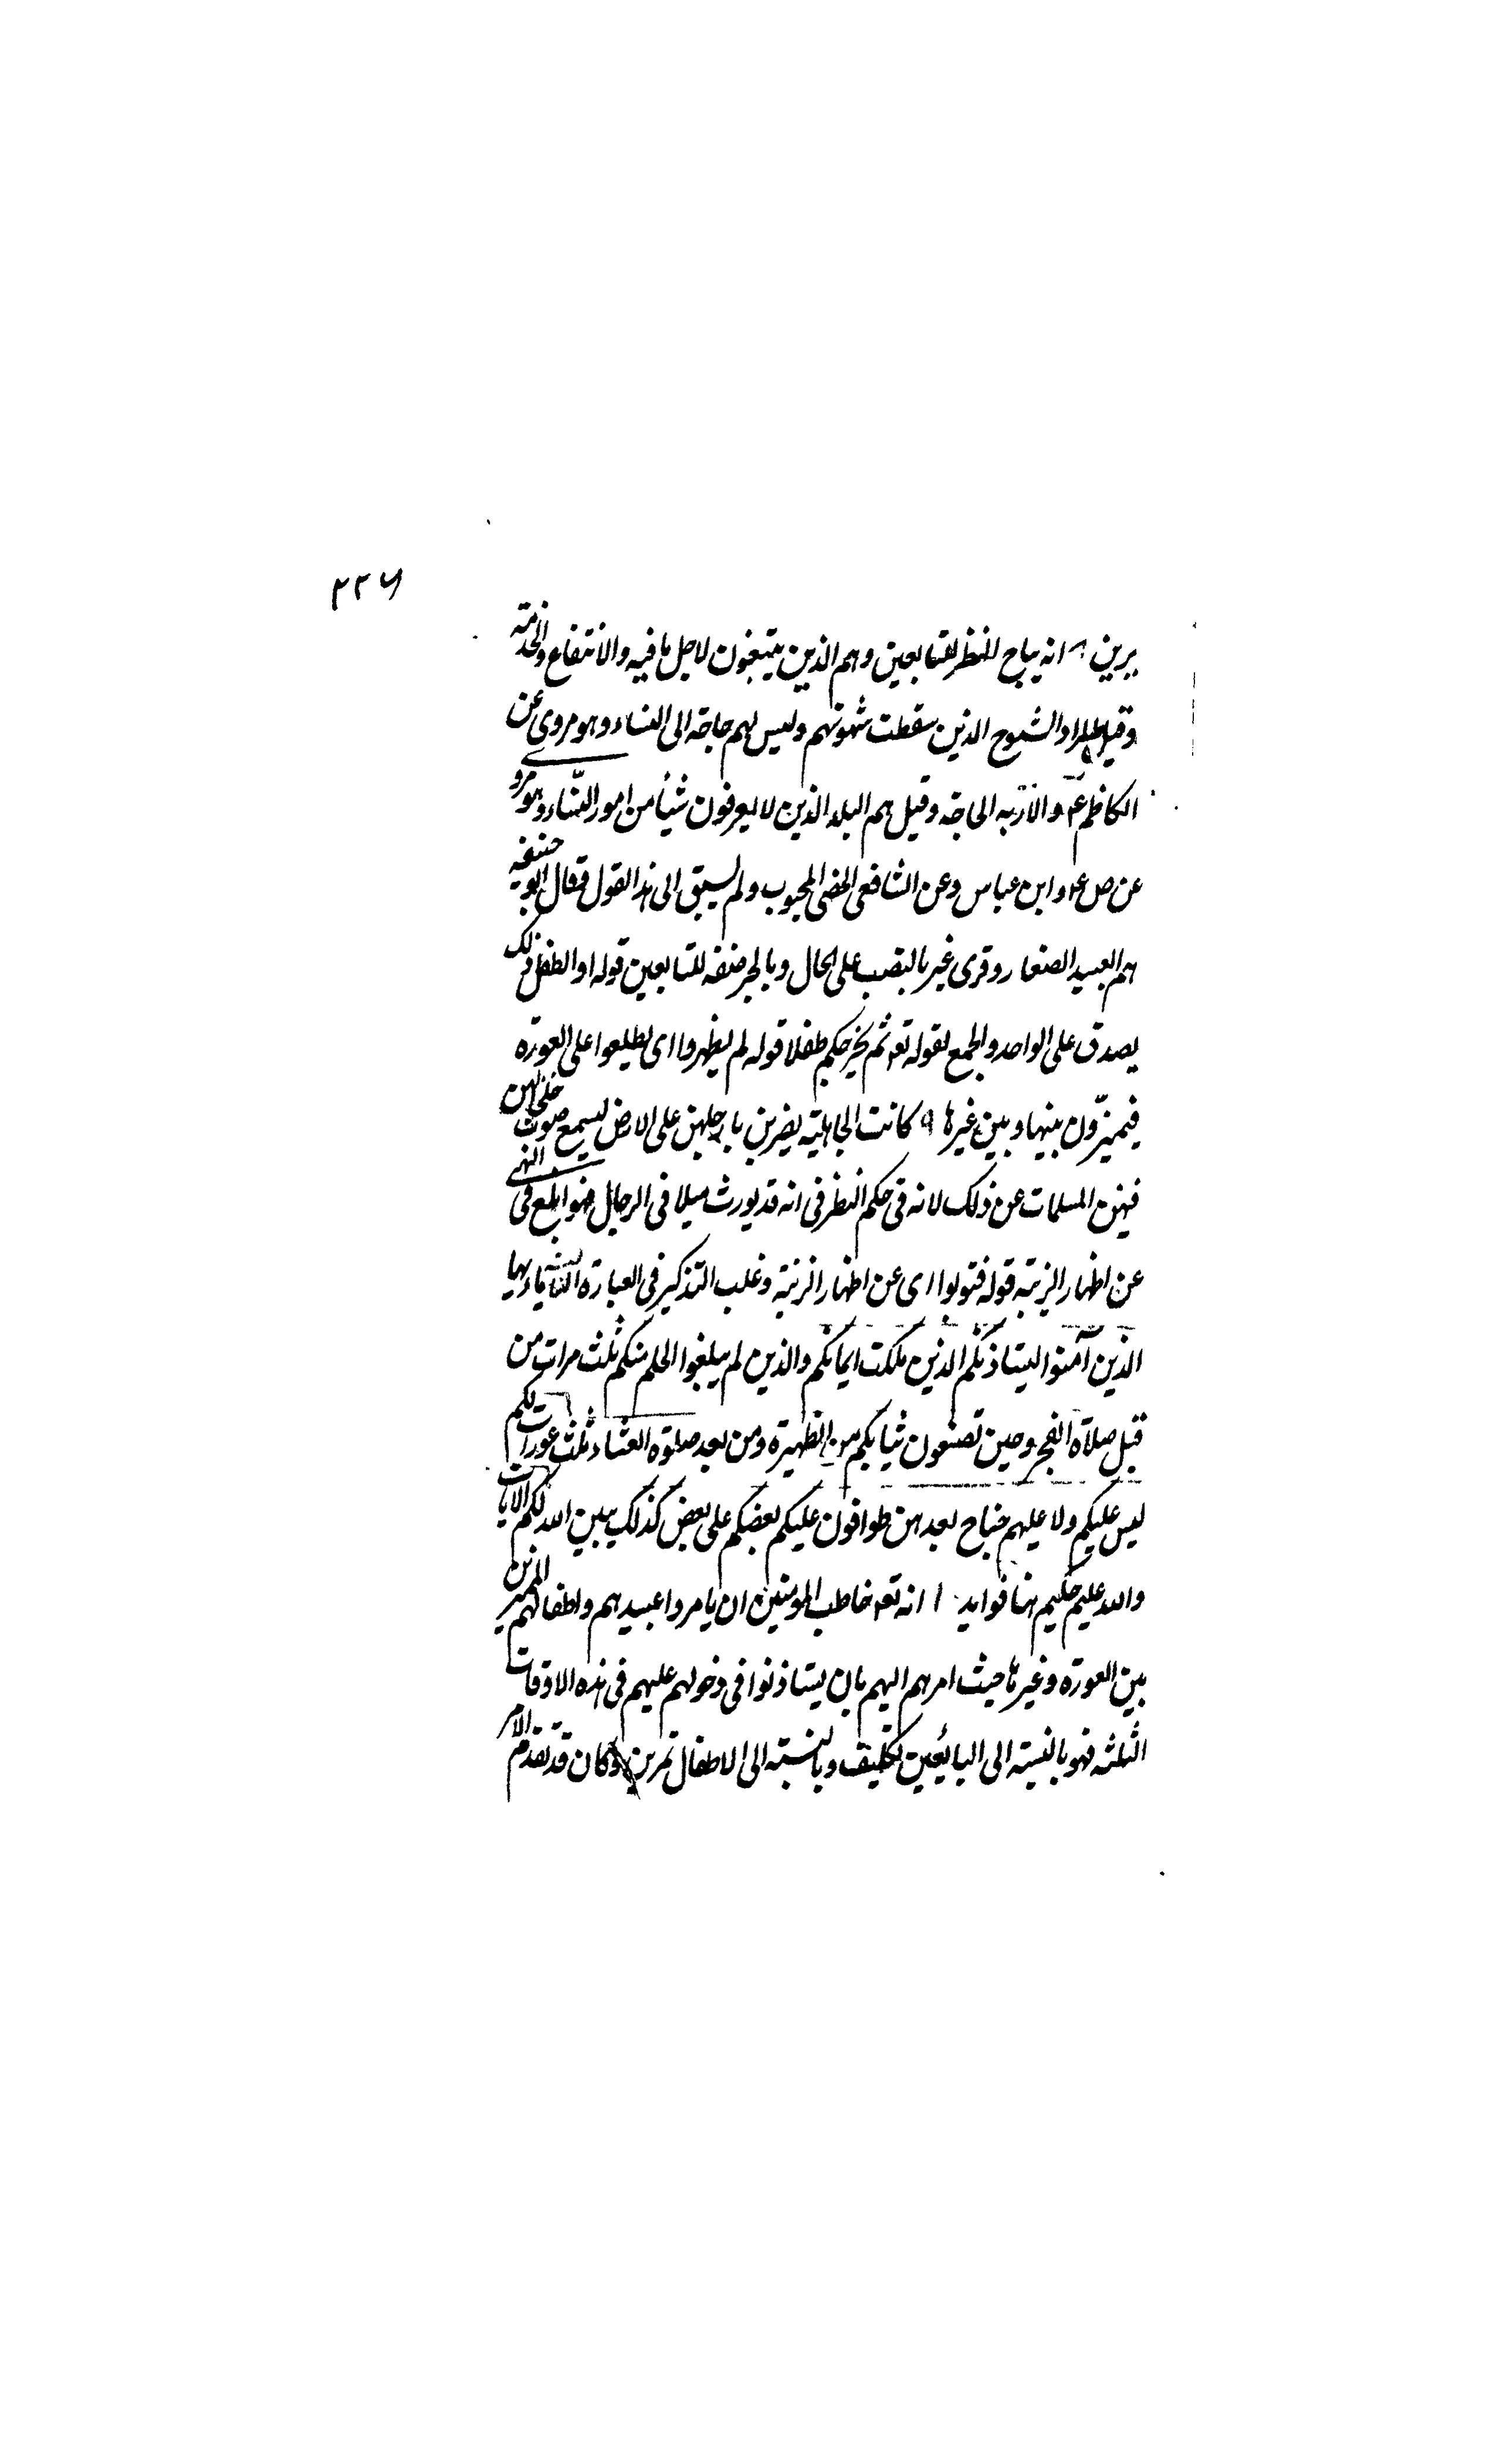 ٢٢٦
يرين ٨ انه يباح النظر للتابعين وهم الذين يتبعون لاجل ما فيه والانتفاع والخدمة
وقيل المراد الشيوخ الذين سقطت شهوتهم وليس لهم حاجة الى النساء وهو مروى عن
الكاظم ع والاربه الحاجة وقيل هم البله الذين لا يعرفون شيئا من امور النساء وهو مرو
عن ص ع وابن عباس وعن الشافعى الخصى المجبوب ولم يسبق الى هذا القول وقال ابو حنيفه
هم العبيد الصغار وقرى غير بالنصب على الحال وبالجر صفة للتابعين قوله او الطفل ذلك
يصدق على الواحد والجمع لقوله تع ثم يخرجكم طفلا قوله لم يظهروا اى يطلعوا على العورة
فيميزون بينها وبين غيرها ٩ كانت الجاهلية يضربن بارجلهن على الارض ليسمع صوت خلخالهن
فنهين المسلمات عن ذلك لانه فى حكم النظر فى انه قد يورث ميلا فى الرجال فهو ابلغ فى النهى
عن اظهار الزينة قوله فتوبوا اى عن اظهار الزينة وغلب التذكير فى العبارة الثالثة يا ايها
الذين آمنوا ليستاذنكم الذين ملكت ايمانكم والذين لم يبلغوا الحلم منكم ثلث مرات من
قبل صلاة الفجر وحين تضعون ثيابكم من الظهيرة ومن بعد صلوة العشاء ثلث عورات لكم
ليس عليكم ولا عليهم جناح بعدهن طوافون عليكم بعضكم على بعض كذلك يبين الله لكم الايات
والله عليم حكيم هنا فوايد ١ انه تع خاطب المومنين ان يامروا عبيدهم واطفالهم المميزين
بين العورة وغيرها حيث امرهم اليهم بان يستاذنوا فى دخولهم عليهم فى هذه الاوقات
الثلثه فهو بالنسبة الى البالغين تكليف وبالنسبة الى الاطفال تمرين وكان قد تقدم الامر